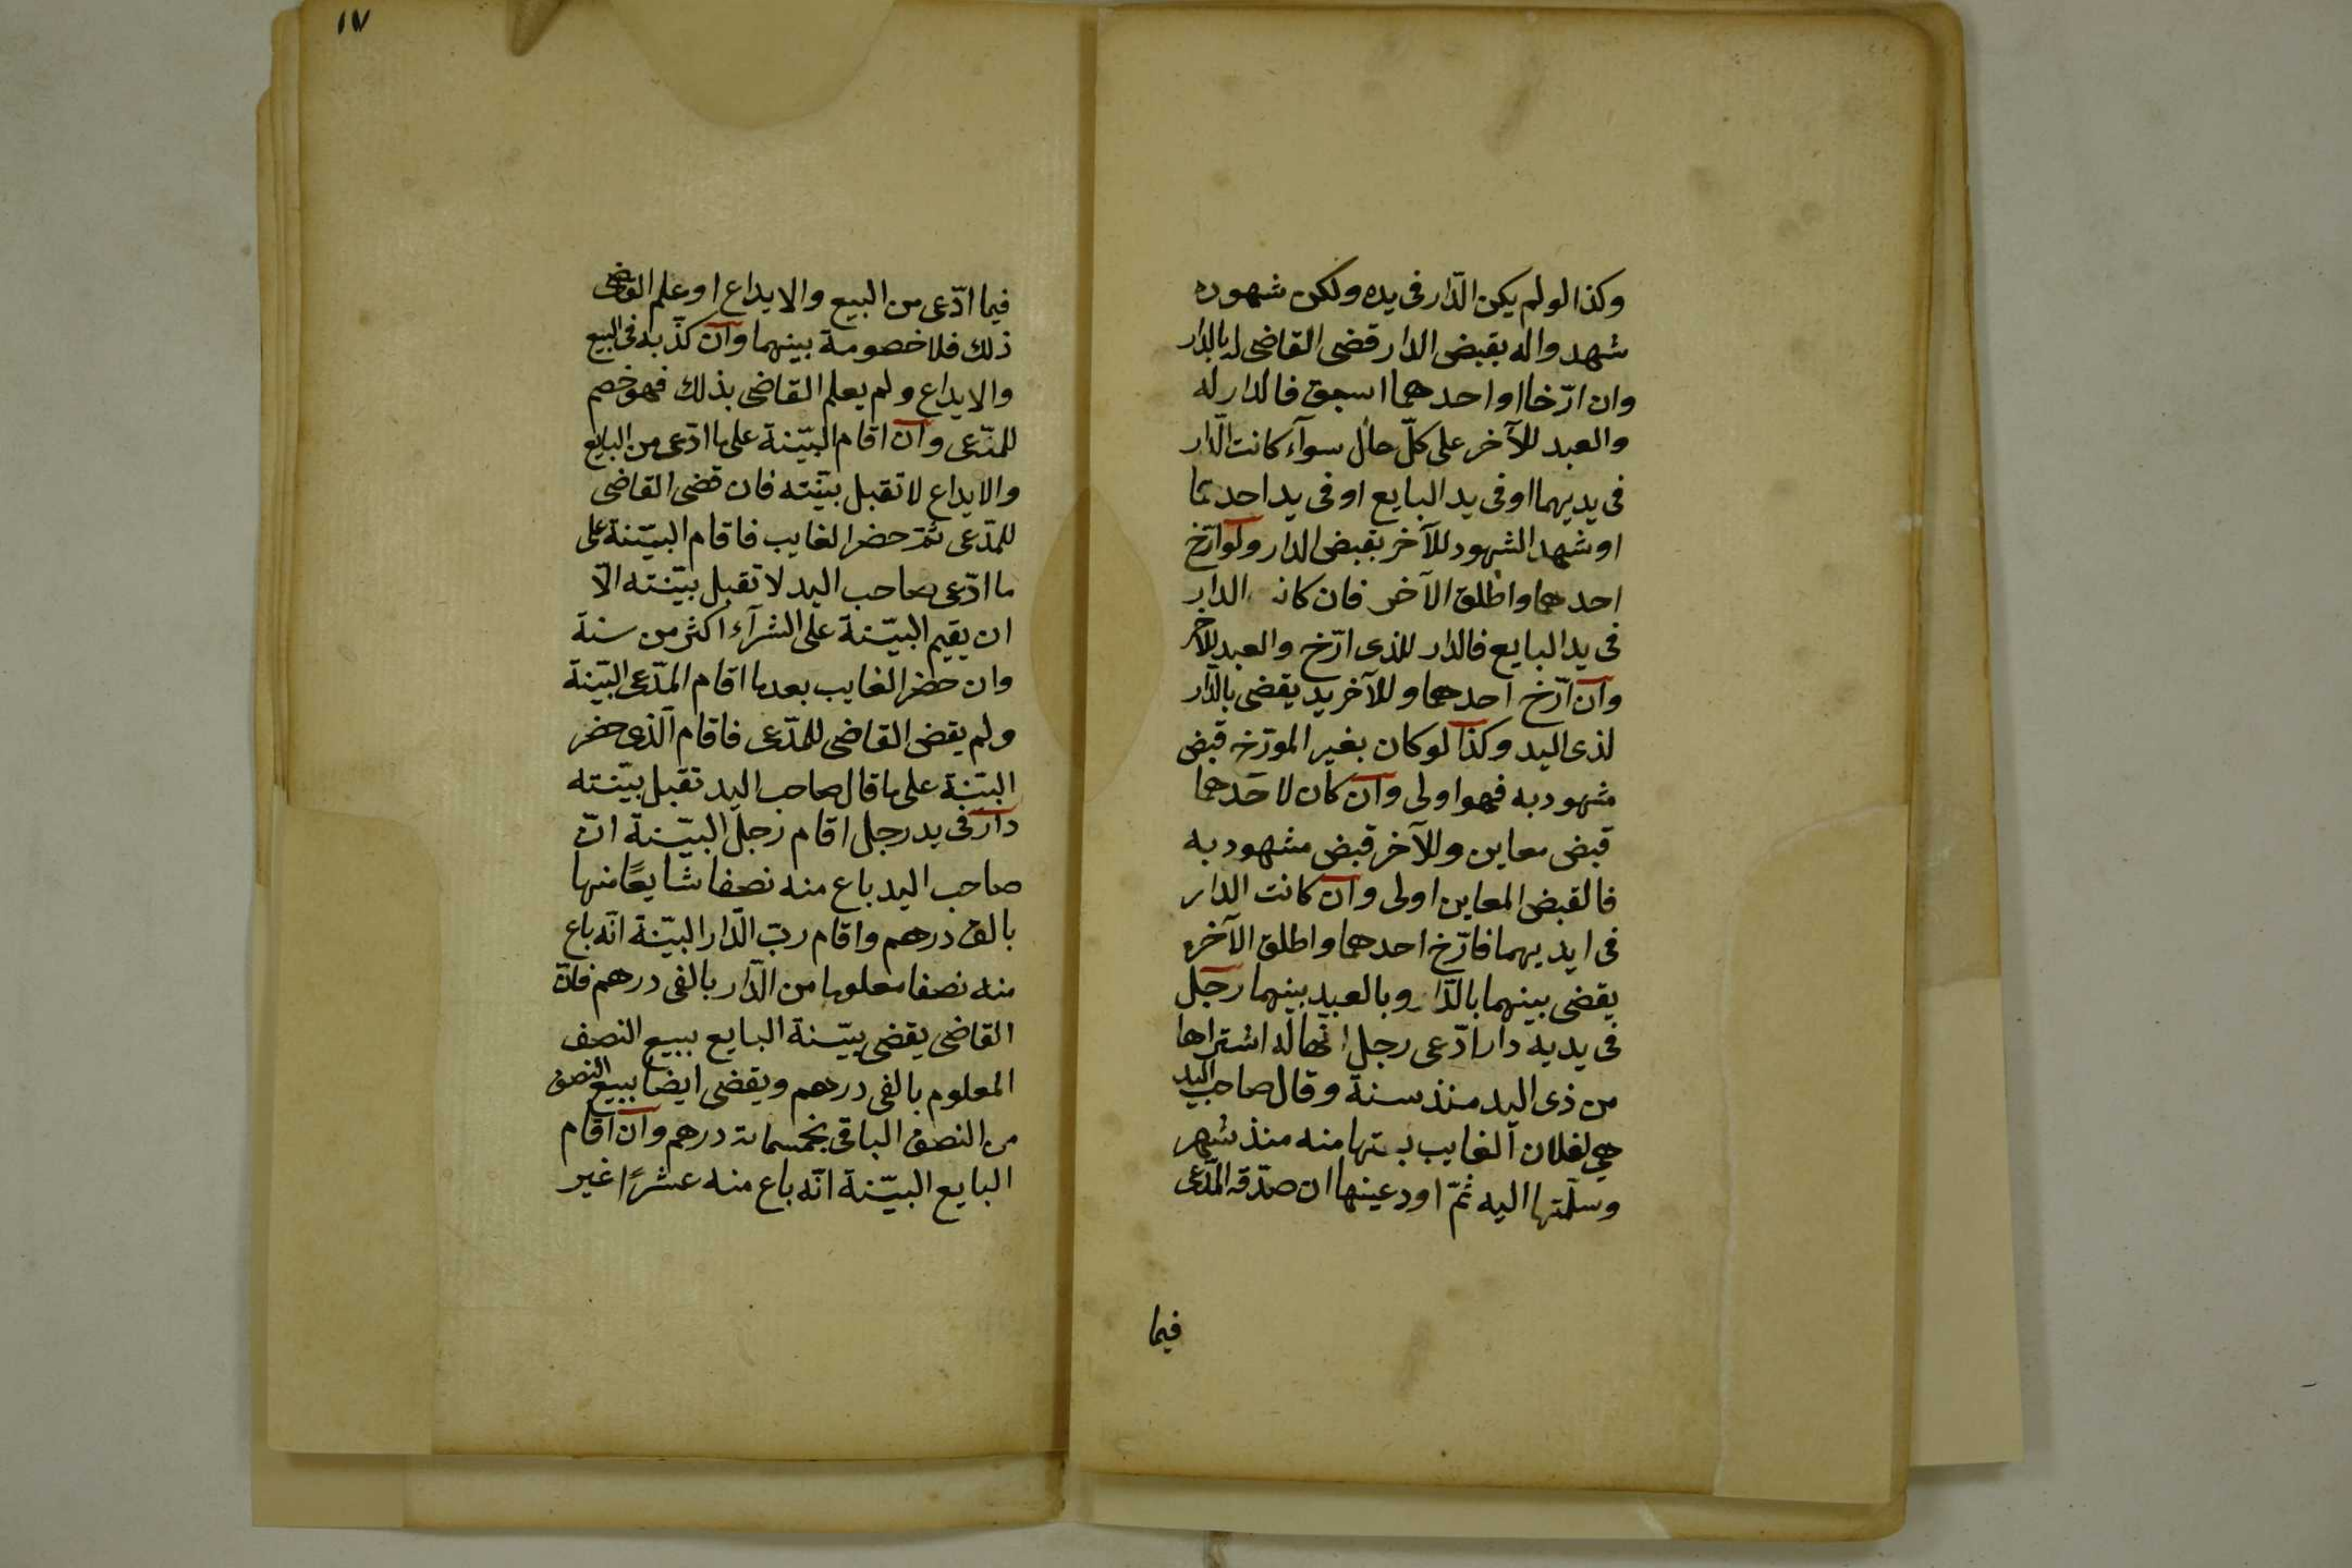 وكذا لو لم يكن الدّار فى يده ولكن شهوده
شهدوا له بقبض الدار قضى القاضى له بالدار
وان ارّخا او احدهما اسبق فالدار له
والعبد للآخر على كلّ حال سوآء كانت الدّار
فى يديهما او فى يد البايع او فى يد احدهما
او شهد الشهود للآخر بقبض الدار ولو ارّخ
احدهما واطلق الآخر فان كانت الدار
فى يد البايع فالدار للذى ارّخ والعبد للآخر
وان ارّخ احدهما وللآخر يد يقضى بالدّار
لذى اليد وكذا لو كان بغير المورّخ قبض
مشهود به فهو اولى وان كان لاحدهما
قبض معاين وللآخر قبض مشهود به
فالقبض المعاين اولى وان كانت الدار
فى ايديهما فارّخ احدهما واطلق الآخر
يقضى بينهما بالدّار وبالعبد بينهما رجل
فى يديه دار ادّعى رجل انّها له اشتراها
من ذى اليد منذ سنة وقال صاحب اليد
هى لفلان الغايب بعتها منه منذ شهر
وسلّمتها اليه ثمّ اودعينها ان صدّقه المدّعى
فيما
١٧
فيما ادّعى من البيع والايداع او علم القاضى
ذلك فلا خصومة بينهما وان كذّبه فى البيع
والايداع ولم يعلم القاضى بذلك فهو خصم
للمدّعى وان اقام البيّنة على ما ادّعى من البايع
والايداع لا تقبل بيّنته فان قضى القاضى
للمدّعى ثمّ حضر الغايب فاقام البيّنة على
ما ادّعى صاحب اليد لا تقبل بيّنته الّا
ان يقيم البيّنة على الشرآء اكثر من سنة
وان حضر الغايب بعد ما اقام المدّعى البيّنة
ولم يقض القاضى للمدّعى فاقام الّذى حضر
البيّنة على ما قال صاحب اليد تقبل بيّنته
دار فى يد رجل اقام رجل البيّنة انّ
صاحب اليد باع منه نصفا شايعًا منها
بالف درهم واقام ربّ الدّار البيّنة انّه باع
منه نصفا معلوما من الدّار بالفى درهم فانّ
القاضى يقضى بيّنة البايع ببيع النصف
المعلوم بالفى درهم ويقضى ايضا ببيع النصف
من النصف الباقى بخمسمائة درهم وان اقام
البايع البيّنة انّه باع منه عشرًا غير